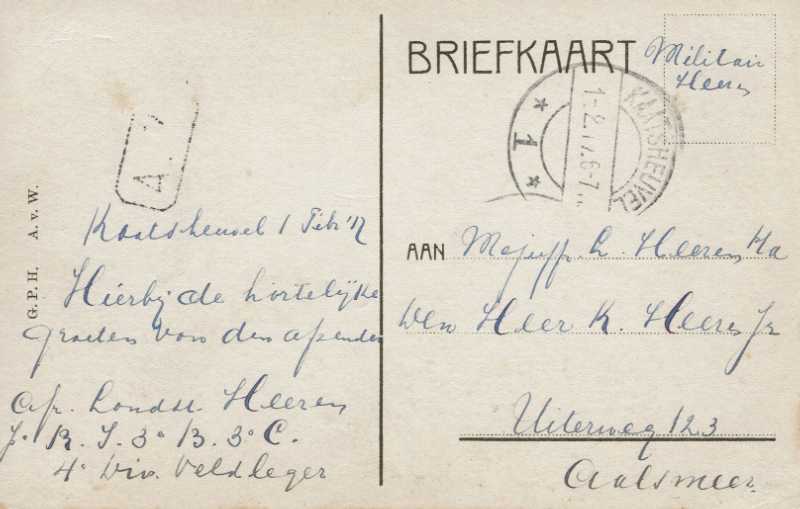 G. P. H. A. v. W.
A.
Kaatsheuvel 1 Febr '17
Hierbij de hartelijke
groeten van den afzender
afz. Landst. Heeren
R. I. 3e B. 3e C.
4e Div. Veldleger
BRIEFKAART
Militair
Heeren
KAATSHEUVEL
1-2.17.6-7
* 1 *
AAN Mejuffr. L. Heeren
den Heer K. Heeren Jr
Uiterweg 123
Aalsmeer